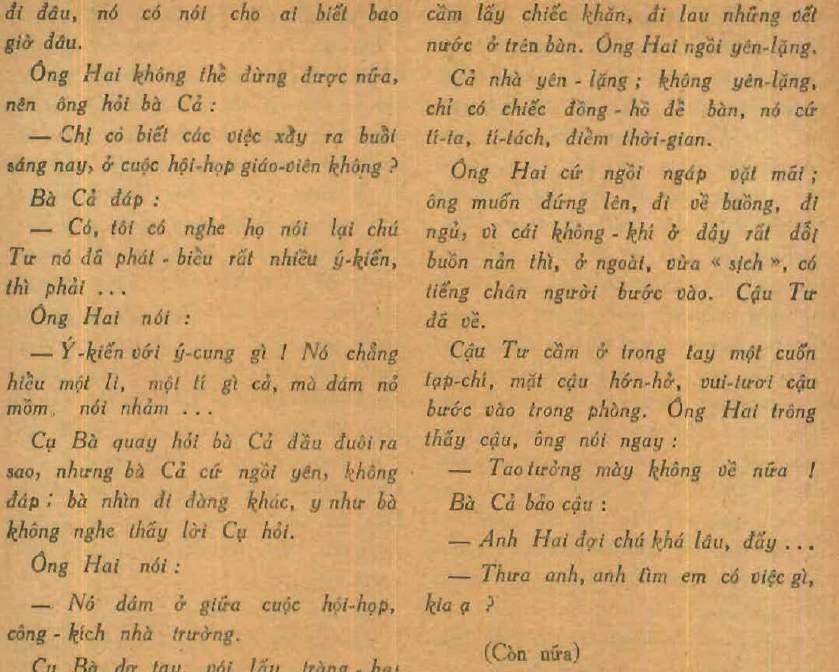 đi đâu, nó có nói cho ai biết bao
giờ đâu.
Ông Hai không thể đừng được nữa,
nên ông hỏi bà Cả :
— Chị có biết các việc xẩy ra buổi
sáng nay, ở cuộc hội-họp giáo-viên không ?
Bà Cả đáp :
— Có, tôi có nghe họ nói lại chú
Tư nó đã phát - biểu rất nhiều ý-kiến,
thì phải ...
Ông Hai nói :
— Ý-kiến với ý-cung gì ! Nó chẳng
hiểu một li, một tí gì cả, mà dám nỏ
mồm, nói nhảm ...
Cụ Bà quay hỏi bà Cả đầu đuôi ra
sao, nhưng bà Cả cứ ngồi yên, không
đáp ; bà nhìn đi đàng khác, y như bà
không nghe thấy lời Cụ hỏi.
Ông Hai nói :
— Nó dám ở giữa cuộc hội-họp,
công - kích nhà trường.
Cụ Bà dơ tay, với lấy tràng - hạt
cầm lấy chiếc khăn, đi lau những vết
nước ở trên bàn. Ông Hai ngồi yên-lặng.
Cả nhà yên - lặng ; không yên-lặng,
chỉ có chiếc đồng - hồ để bàn, nó cứ
tí-ta, tí-tách, điểm thời-gian.
Ông Hai cứ ngồi ngáp vặt mãi ;
ông muốn đứng lên, đi về buồng, đi
ngủ, vì cái không - khí ở đây rất đỗi
buồn nản thì, ở ngoài, vừa « sịch », có
tiếng chân người bước vào. Cậu Tư
đã về.
Cậu Tư cầm ở trong tay một cuốn
tạp-chí, mặt cậu hớn-hở, vui-tươi cậu
bước vào trong phòng. Ông Hai trông
thấy cậu, ông nói ngay :
— Tao tưởng mày không về nữa !
Bà Cả bảo cậu :
— Anh Hai đợi chú khá lâu, đấy ...
— Thưa anh, anh tìm em có việc gì,
kia ạ ?
(Còn nữa)